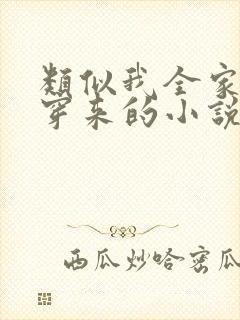 類似我全家
穿来的小説
西瓜炒哈密瓜